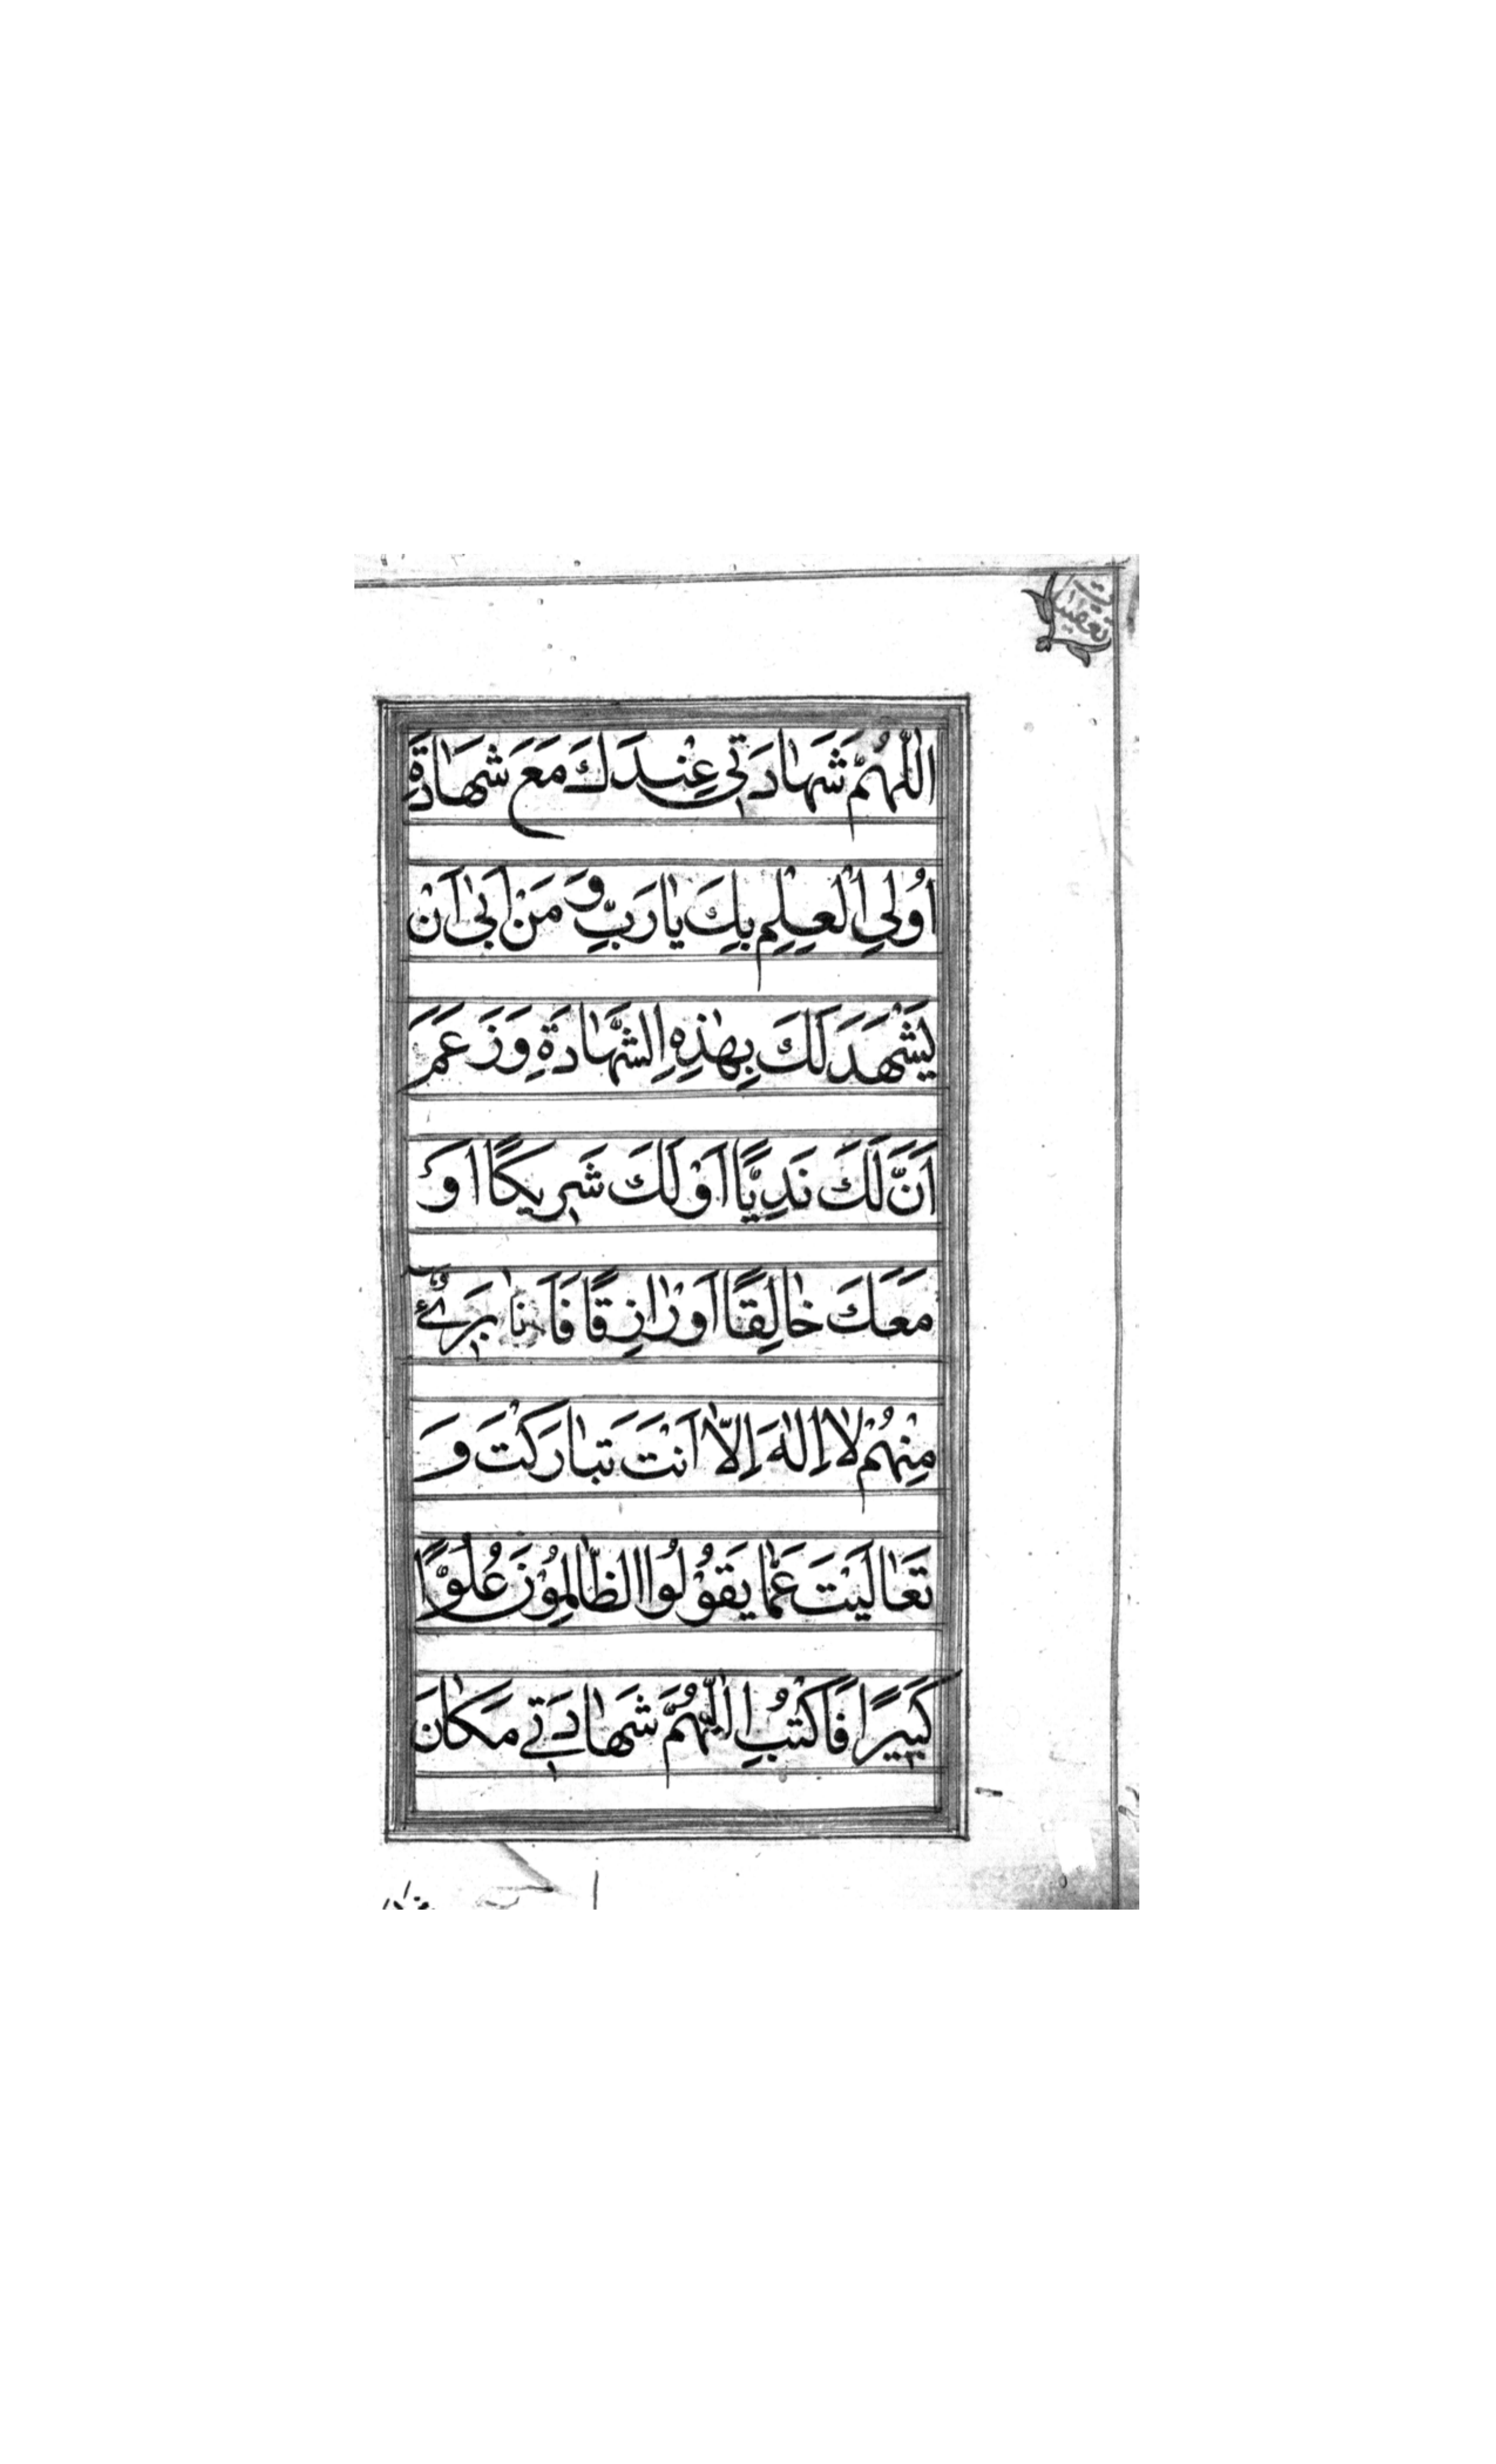 تعقیبات
اَللّٰهُمَّ شَهٰادَتي عِنْدَكَ مَعَ شَهٰادَةِ
اُولِي الْعِلِمِ بِكَ يٰارَبِّ وَ مَنْ اَبىٰ اَنْ
يَشْهَدَ لَكَ بِهٰذِهِ الشَّهٰادَةِ وَ زَعَمَ
اَنَّ لَكَ نَدِيًّا اَوْ لَكَ شَريكًا اَوْ
مَعَكَ خٰالِقًا اَوْ رٰازِقًا فَاَنَا بَرئٌ
مِنْهُمْ لٰا اِلٰهَ اِلّٰا اَنْتَ تَبٰارَكْتَ وَ
تَعٰالَيْتَ عَمّٰا يَقُوْلُوا الظّٰالِمُوْنَ عُلُوًّا
كَبيرًا فَاكْتُبِ اللّٰهُمَّ شَهٰادَتي مَكٰانَ